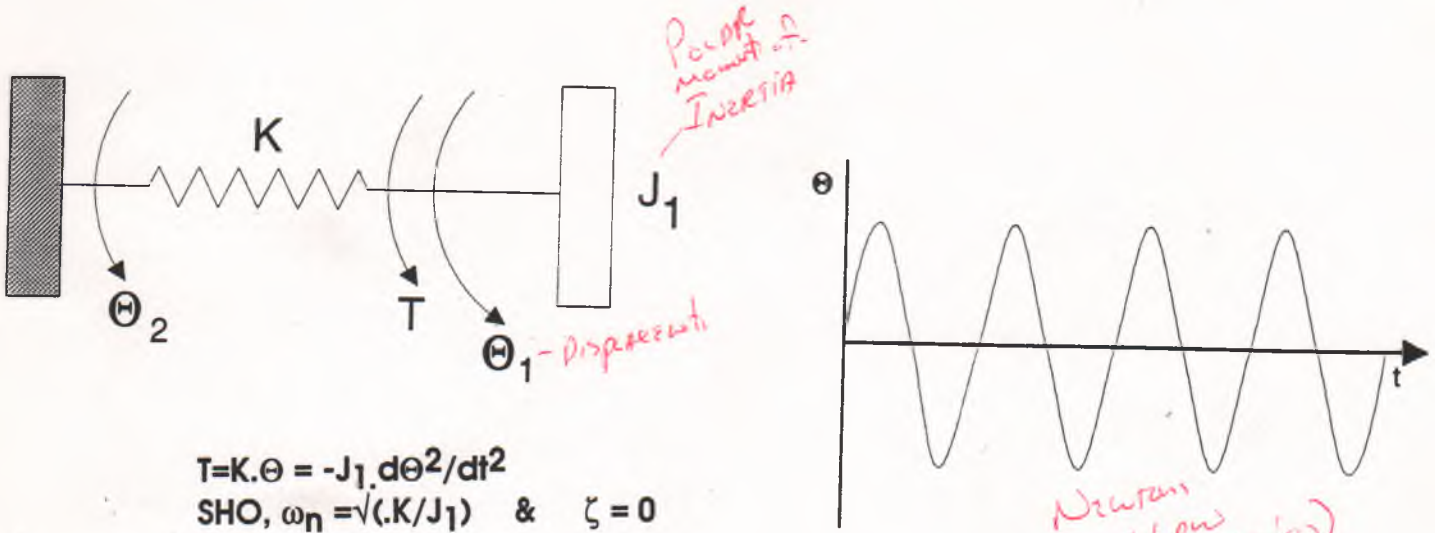 POLAR
moment of
INERTIA
K
J1
Θ
Θ2
T
Θ1 - Displacement
t
T=K.Θ = -J1.dΘ2/dt2
SHO, ωn =√(.K/J1) & ζ = 0
Newton